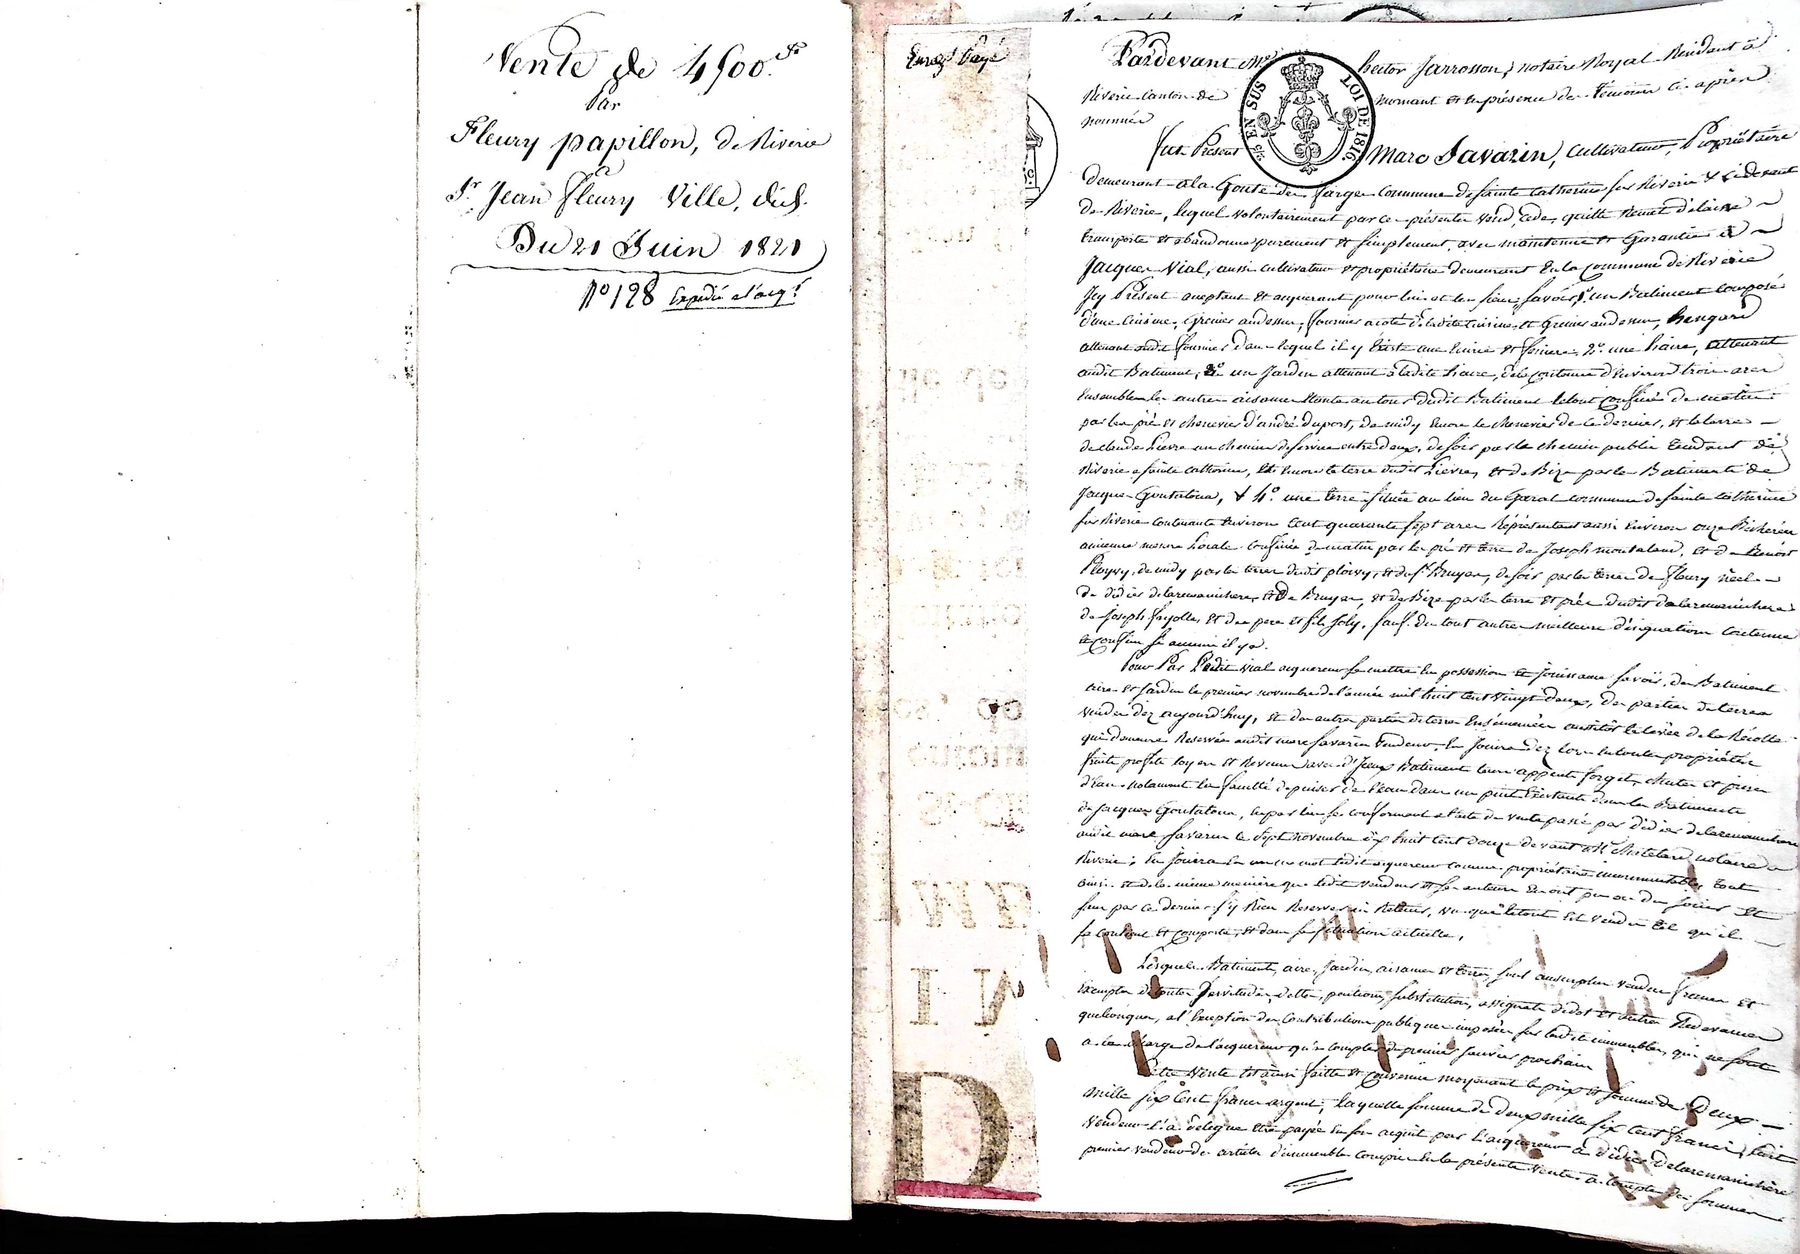 Vente de 4500.fr
Par
Fleury papillon, de Riverie
a
Sr. Jean Fleury Ville, dud.
Du 21 Juin 1821
No 128 Expedié a l'acqr
Enregt Payé
Pardevant Me hector Jarrosson, notaire Royal Residant à
Riverie canton de Mornant et en présence des temoins ci après
nommés
EN SUS
LOI DE 1816
Fut Présent Marc Savarin, cultivateur, Propriétaire
demeurant a la Commune de Sainte Catherine sur Riverie & cidevant
de Riverie, lequel volontairement par ces présentes vend, cede, quitte Remet délaisse
transporte et abandonne purement et simplement, avec maintenue et Garantie à
Jacques Vial, aussi cultivateur et propriétaire demeurant en la Commune de Riverie
Icy Présent acceptant et acquerant pour lui et les siens, savoir, 1o. un Batiment composé
d'une Cuisine, Greniers audessus, fournier a coté de ladite Cuisine et Greniers audessus, hangard
attenant audit fournier dans lequel il y Existe une Ecurie et feniere, 2o. une haire, attenant
audit Batiment, 3o un Jardin attenant à ladite haire, de la contenue d'Environ trois ares
Ensemble les autres aisances etant au tour dudit Batiment le tout Confiné de matin
par les pré et chenevier d'andré duport, de midy encore le chenevier de ce dernier, et la terre
de claude Lievre un chemin de service entre deux, de soir par le chemin public tendant de
Riverie a Sainte Catherine, et encore la terre dudit Lievre, et de Bize par les Batiments de
Jacques Goutaloua, & 4o. une terre située au lieu du Garat commune de Sainte Catherine
sur Riverie contenante Environ cent quarante sept ares Représentant aussi Environ onze Bicherées
ancienne mesure Locale Confinée de matin par les pré et terre de Joseph montaland, et de Benoit
Ployvy, de midy par les terres dudit ployvy, et du Sr Bruyas, de soir par les terres de Fleury
de didier delaremanichere, et de Bruyas, et de Bize par les terre et prés dudit delaremanichere
de Joseph fayolle, et des pere et fils Joly, sauf du tout autre meilleure désignation contenue
et confins si aucuns il y a.
Pour Par Ledit Vial acquereur se mettre en possession et Jouissance savoir, des Batiment
aire et Jardin le premier novembre de l'année mil huit cent vingt deux, des parties de terres
vendues dez aujourd'huy, et des autres parties de terres Ensemencées aussitôt la levée de la Récolte
qui demeure Reservée audit marc Savarin Vendeur, En Jouira dez lors en toute propriété
fruits profits loyers et Revenus avec d'Jceux Batiment leurs appents forgets, chutes et prises
d'Eau notamment la faculté de puiser de l'eau dans un puit Existante dans les Batiments
de Jacques Goutaloua, en par lui se conformant a l'acte de vente passé par Didier delaremanichere
audit marc Savarin le Sept novembre dix huit cent douze devant Me Chatelard notaire a
Riverie; En Jouira En un mot ledit acquereur comme propriétaire incommutable tout
ainsi et de la même manière que ledit Vendeur et ses auteurs En ont pu ou du jouir et
sans par ce dernier s'y Rien Reserver ni Retenir, vu que le tout Est vendu tel qu'il
se contient et comporte, et dans sa situation actuelle.
Lesquels Batiment, aire, Jardin, aisances et terres, sont au surplus vendus francs et
Exempts de toutes servitudes, dettes, pensions, substitutions, assignats de dot et autres Redevances
quelconques, a l'Exception des Contributions publiques imposées sur lesdits immeubles, qui ne sont
a la charge de l'acquereur qu'a compter du premier Janvier prochain
Cette Vente est ainsi faitte et Convenue moyenant le prix et somme de Deux
mille six Cent francs argent, laquelle somme de deux mille six Cent francs, Ledit
Vendeur l'a delegue etre payée En son acquit par l'acquereur à Didier delaremanichere
premier vendeur des articles d'immeubles compris En la présente vente a compte des sommes